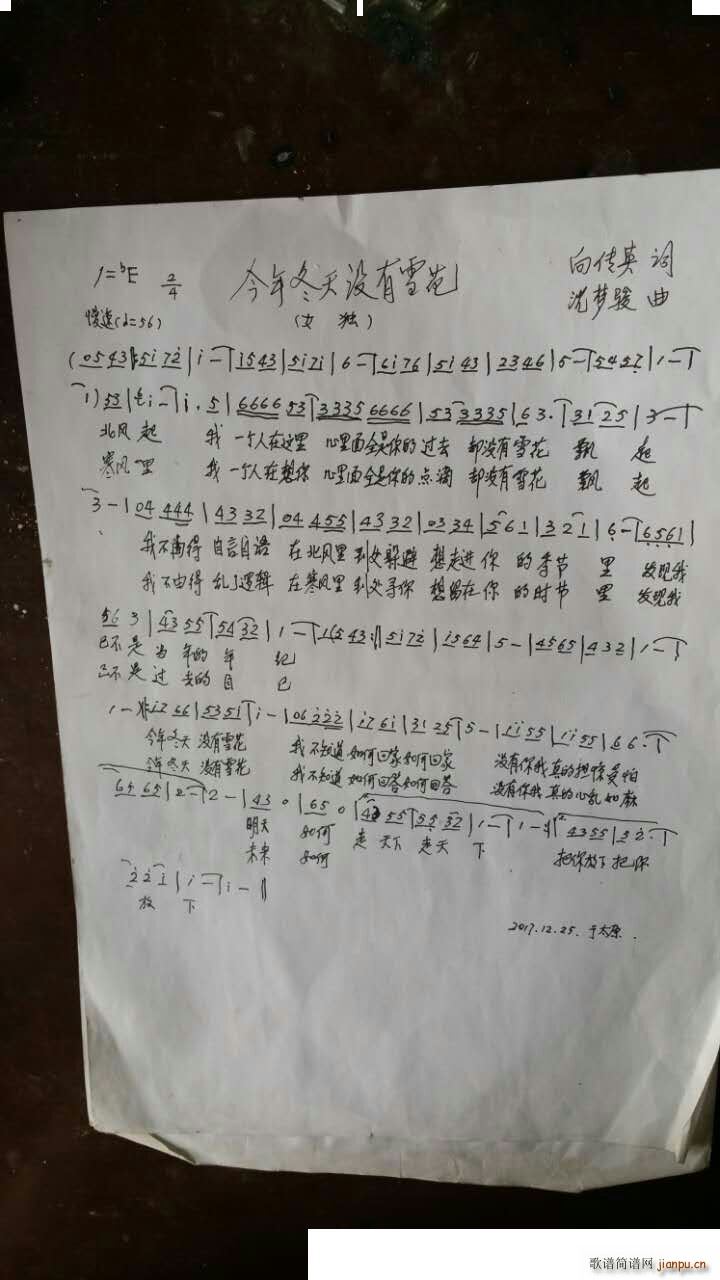 1=ᵇE 2/4 今年冬天没有雪花 向传英 词
慢速(♩=56) (女 独) 沈梦骏 曲
(0543|5i72|i-|i543|5i7i|6-|6i76|5i43|2346|5-|5457|1-|
1)53|i-|i.5|666653|33356666|533335|63.|3125|3-|
北风起 我一个人在这里 心里面全是你的过去 却没有雪花 飘 起
寒风里 我一个人在想你 心里面全是你的点滴 却没有雪花 飘 起
3-|04444|4332|04455|4332|0334|561|321|6-|6561|
我不由得 自言自语 在北风里 到处躲避 想走进 你 的 季节 里 发现我
我不由得 乱了逻辑 在寒风里 到处寻你 想留在 你 的 时节 里 发现我
563|4355|5432|1-|1(543:|5i72|i564|5-|4565|432|1-|
已不是 当 年的 年 纪
已不是 过 去的 自 己
1-)|i766|5351|i-|06222|i76i|3125|5-|1155|1155|66.|
今年冬天 没有雪花 我不知道 如何回家如何回家 没有你我真的担惊受怕
今年冬天 没有雪花 我不知道 如何回答如何回答 没有你我真的心乱如麻
6565|2-|2-|430|650|4355|5532|1-|1-|4355|32.|
明天 如何 走 天下 走天 下 把你放下 把你
未来 如何
221|i-|i-||
放 下
2017.12.25.于太原.
歌谱简谱网 jianpu.cn